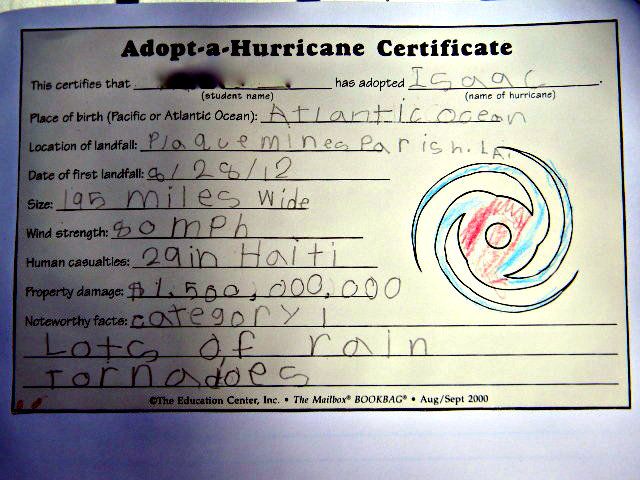 Adopt-a-Hurricane Certificate
This certifies that has adopted Isaac.
(student name) (name of hurricane)
Place of birth (Pacific or Atlantic Ocean): Atlantic ocean
Location of landfall: Plaquemines Parish. LA.
Date of first landfall: 8/28/12
Size: 195 miles wide
Wind strength: 80 mph
Human casualties: 29 in Haiti
Property damage: $1.500,000,000
Noteworthy facts: category 1
Lots of rain
Tornadoes
©The Education Center, Inc. • The Mailbox® BOOKBAG® • Aug/Sept 2000